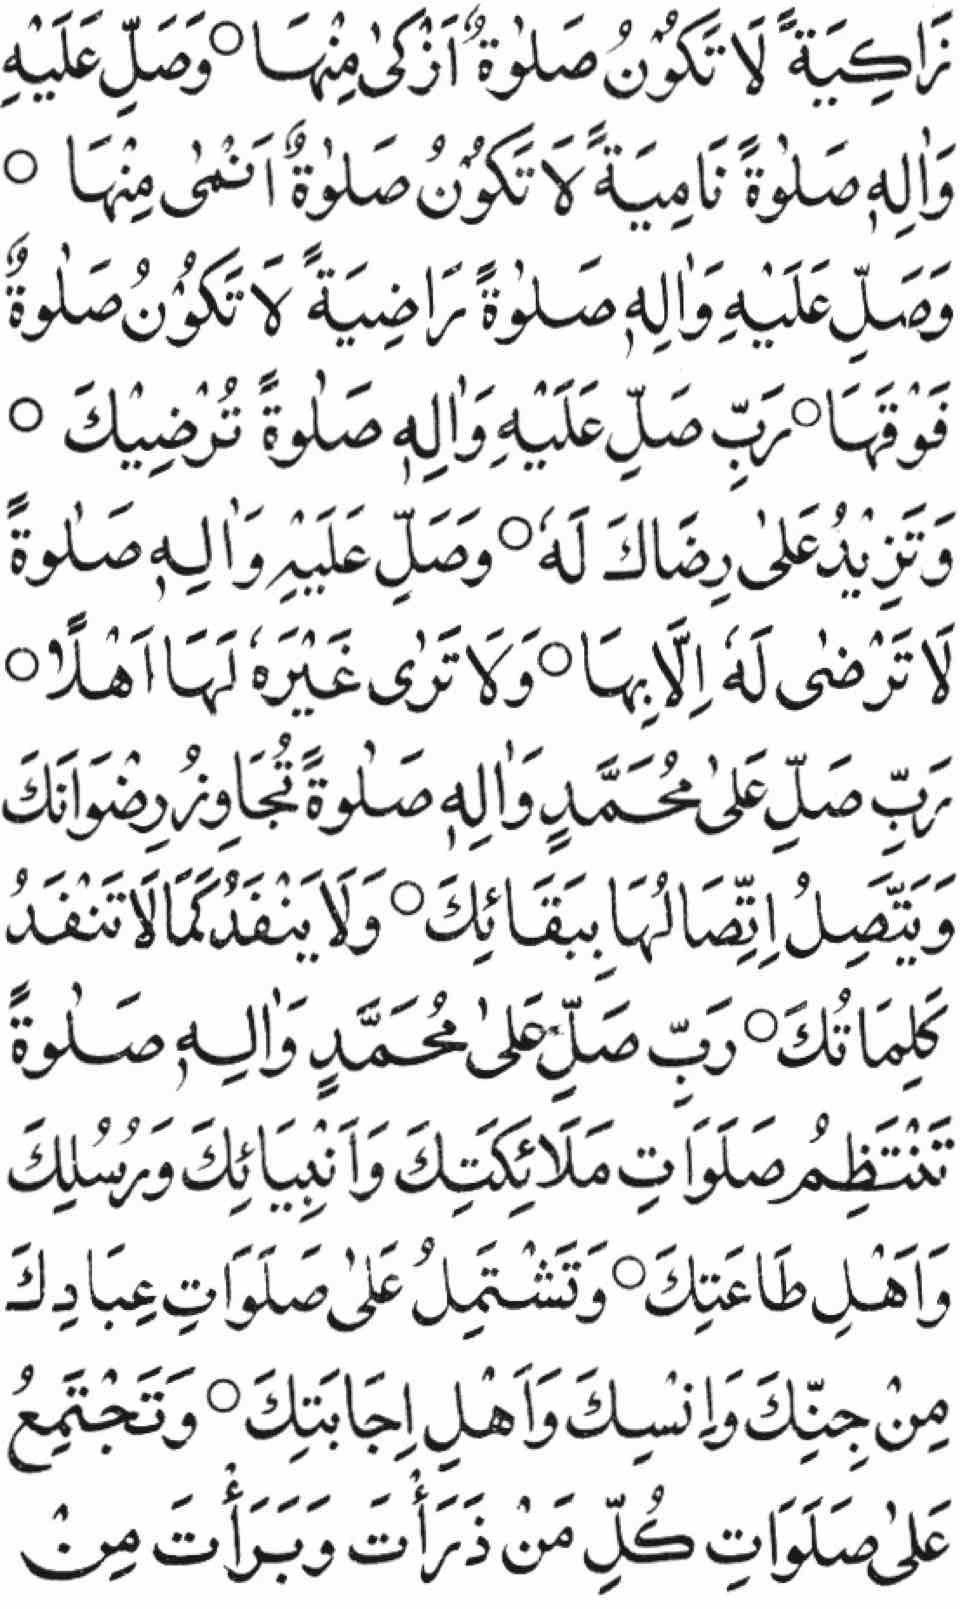 زَاكِيَةً لَا تَكُوْنُ صَلٰوةٌ اَزْكٰى مِنْهَا ○ وَصَلِّ عَلَيْهِ
وَاٰلِهٖ صَلٰوةً نَامِيَةً لَا تَكُوْنُ صَلٰوةٌ اَنْمٰى مِنْهَا ○
وَصَلِّ عَلَيْهِ وَاٰلِهٖ صَلٰوةً رَاضِيَةً لَا تَكُوْنُ صَلٰوةٌ
فَوْقَهَا ○ رَبِّ صَلِّ عَلَيْهِ وَاٰلِهٖ صَلٰوةً تُرْضِيْكَ ○
وَتَزِيْدُ عَلٰى رِضَاكَ لَهٗ ○ وَصَلِّ عَلَيْهِ وَاٰلِهٖ صَلٰوةً
لَا تَرْضٰى لَهٗ اِلَّا بِهَا ○ وَلَا تَرٰى غَيْرَهٗ لَهَا اَهْلًا ○
رَبِّ صَلِّ عَلٰى مُحَمَّدٍ وَاٰلِهٖ صَلٰوةً تُجَاوِزُ رِضْوَانَكَ
وَيَتَّصِلُ اِتِّصَالُهَا بِبَقَائِكَ ○ وَلَا يَنْفَدُ كَمَا لَا تَنْفَدُ
كَلِمَاتُكَ ○ رَبِّ صَلِّ عَلٰى مُحَمَّدٍ وَاٰلِهٖ صَلٰوةً
تَنْتَظِمُ صَلَوَاتِ مَلَائِكَتِكَ وَاَنْبِيَائِكَ وَرُسُلِكَ
وَاَهْلِ طَاعَتِكَ ○ وَتَشْتَمِلُ عَلٰى صَلَوَاتِ عِبَادِكَ
مِنْ جِنِّكَ وَاِنْسِكَ وَاَهْلِ اِجَابَتِكَ ○ وَتَجْتَمِعُ
عَلٰى صَلَوَاتِ كُلِّ مَنْ ذَرَأْتَ وَبَرَأْتَ مِنْ